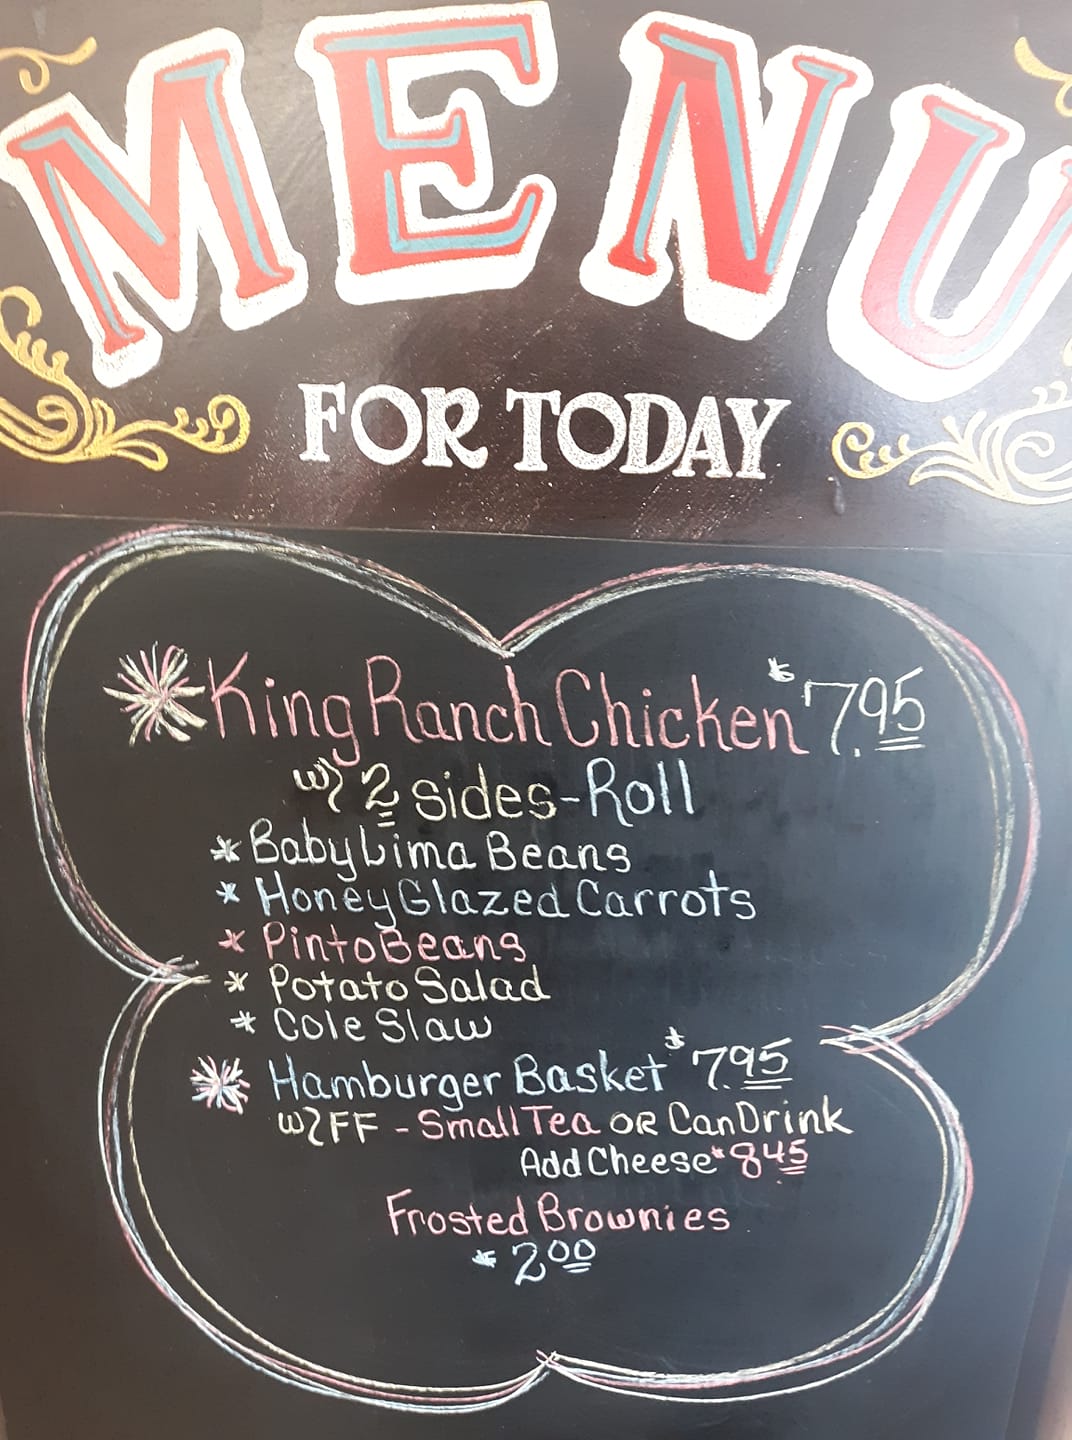 MENU
FOR TODAY
* King Ranch Chicken $7.95
w/ 2 sides - Roll
* Baby Lima Beans
* Honey Glazed Carrots
* Pinto Beans
* Potato Salad
* Cole Slaw
* Hamburger Basket $7.95
w/ FF - Small Tea OR Can Drink
Add Cheese $8.45
Frosted Brownies
$2.00